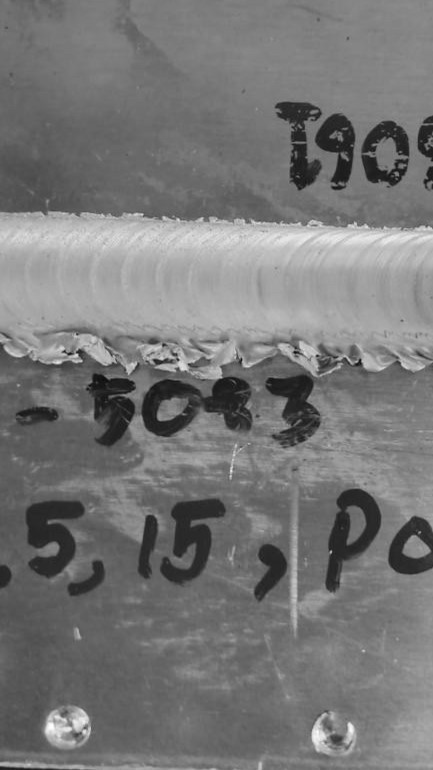 I909
- 5083
,5, 15, Po